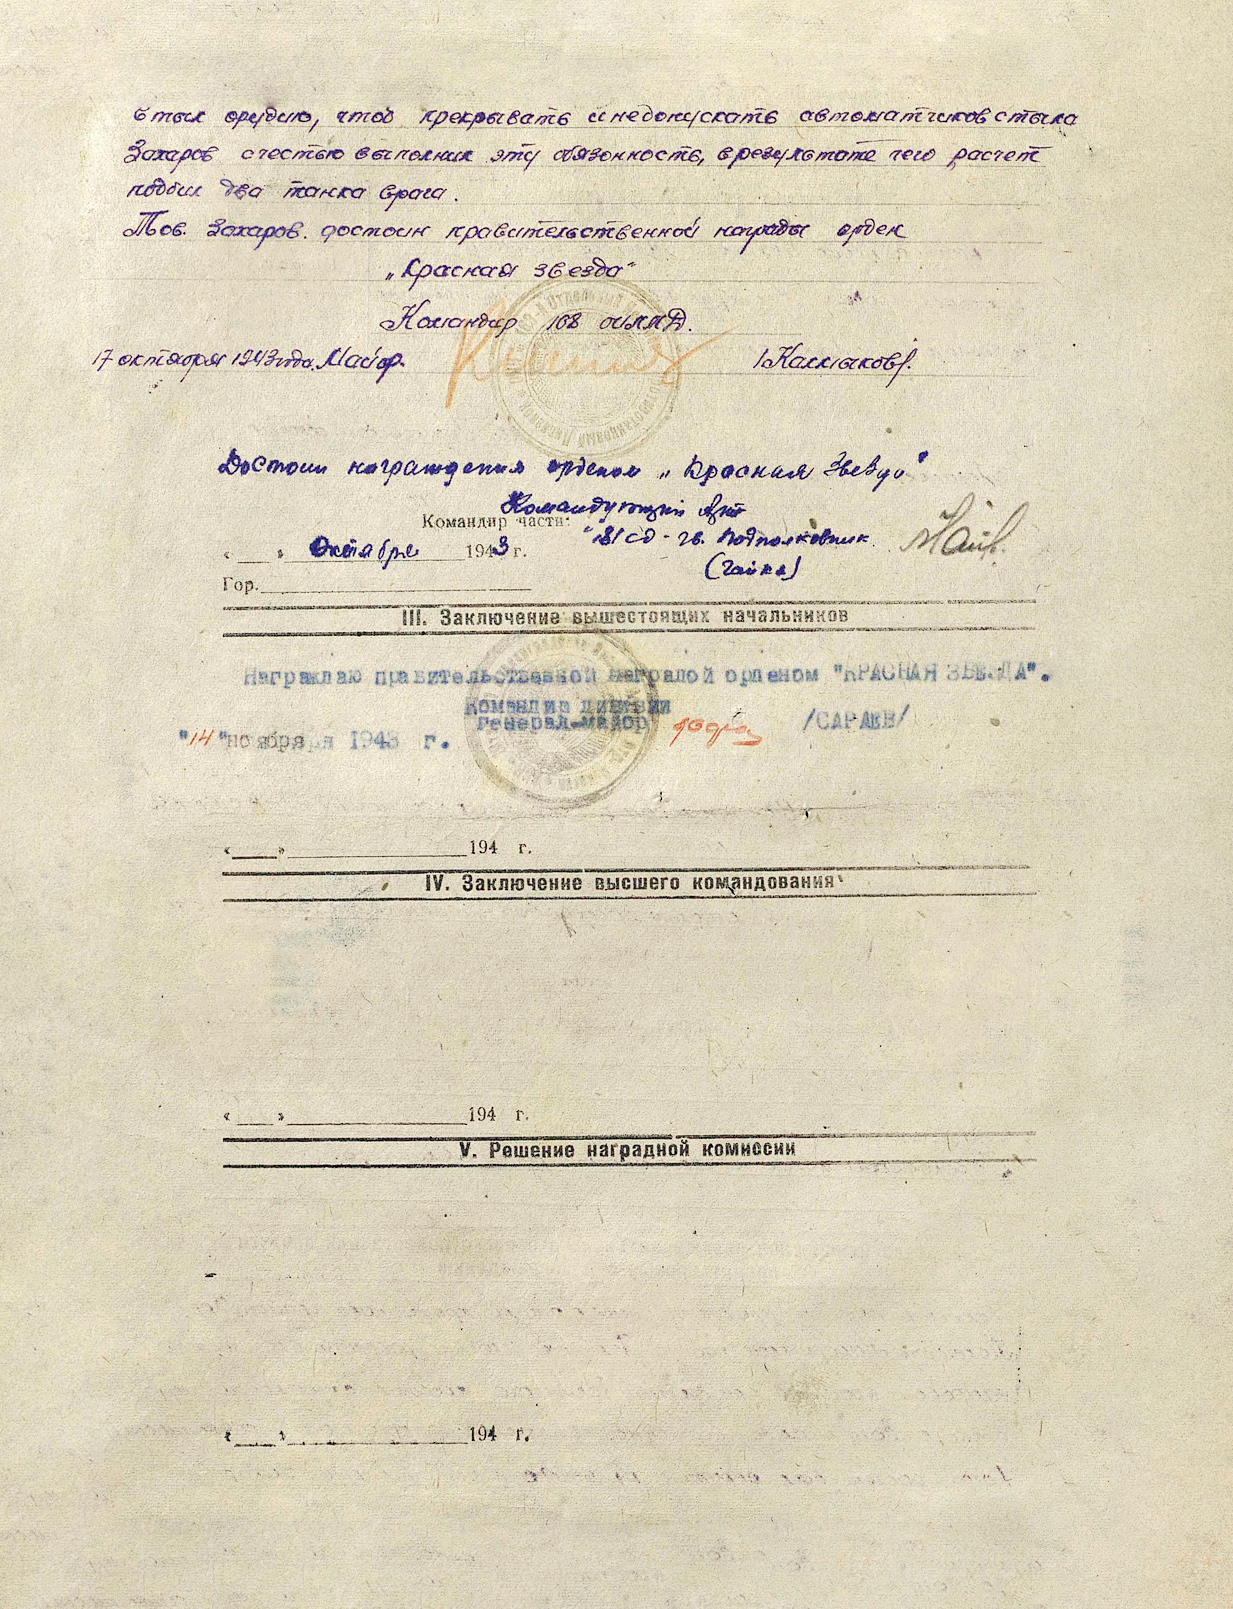 в тыл орудию, чтоб прекрывать и недопускать автоматчиков с тыла
Захаров с честью выполнил эту обязонность, в результате чего расчет
подбил два танка врага.
Тов. Захаров. достоин правительственной награды орден
„Красная звезда"
Командир 168 оиптд.
17 октября 1943 года. Майор. /Калмыков/.
Достоин награждения орденом „Красная Звезда"
Командующий Арт
Командир части:
181 СД - гв. подполковник
« » Октября 1943 г.
(Гайка)
Гор.
III. Заключение вышестоящих начальников
Награждаю правительственной наградой орденом "КРАСНАЯ ЗВЕЗДА".
Командир дивизии
генерал-майор /САРАЕВ/
"14" ноября 1943 г.
« » 194 г.
IV. Заключение высшего командования
« » 194 г.
V. Решение наградной комиссии
« » 194 г.